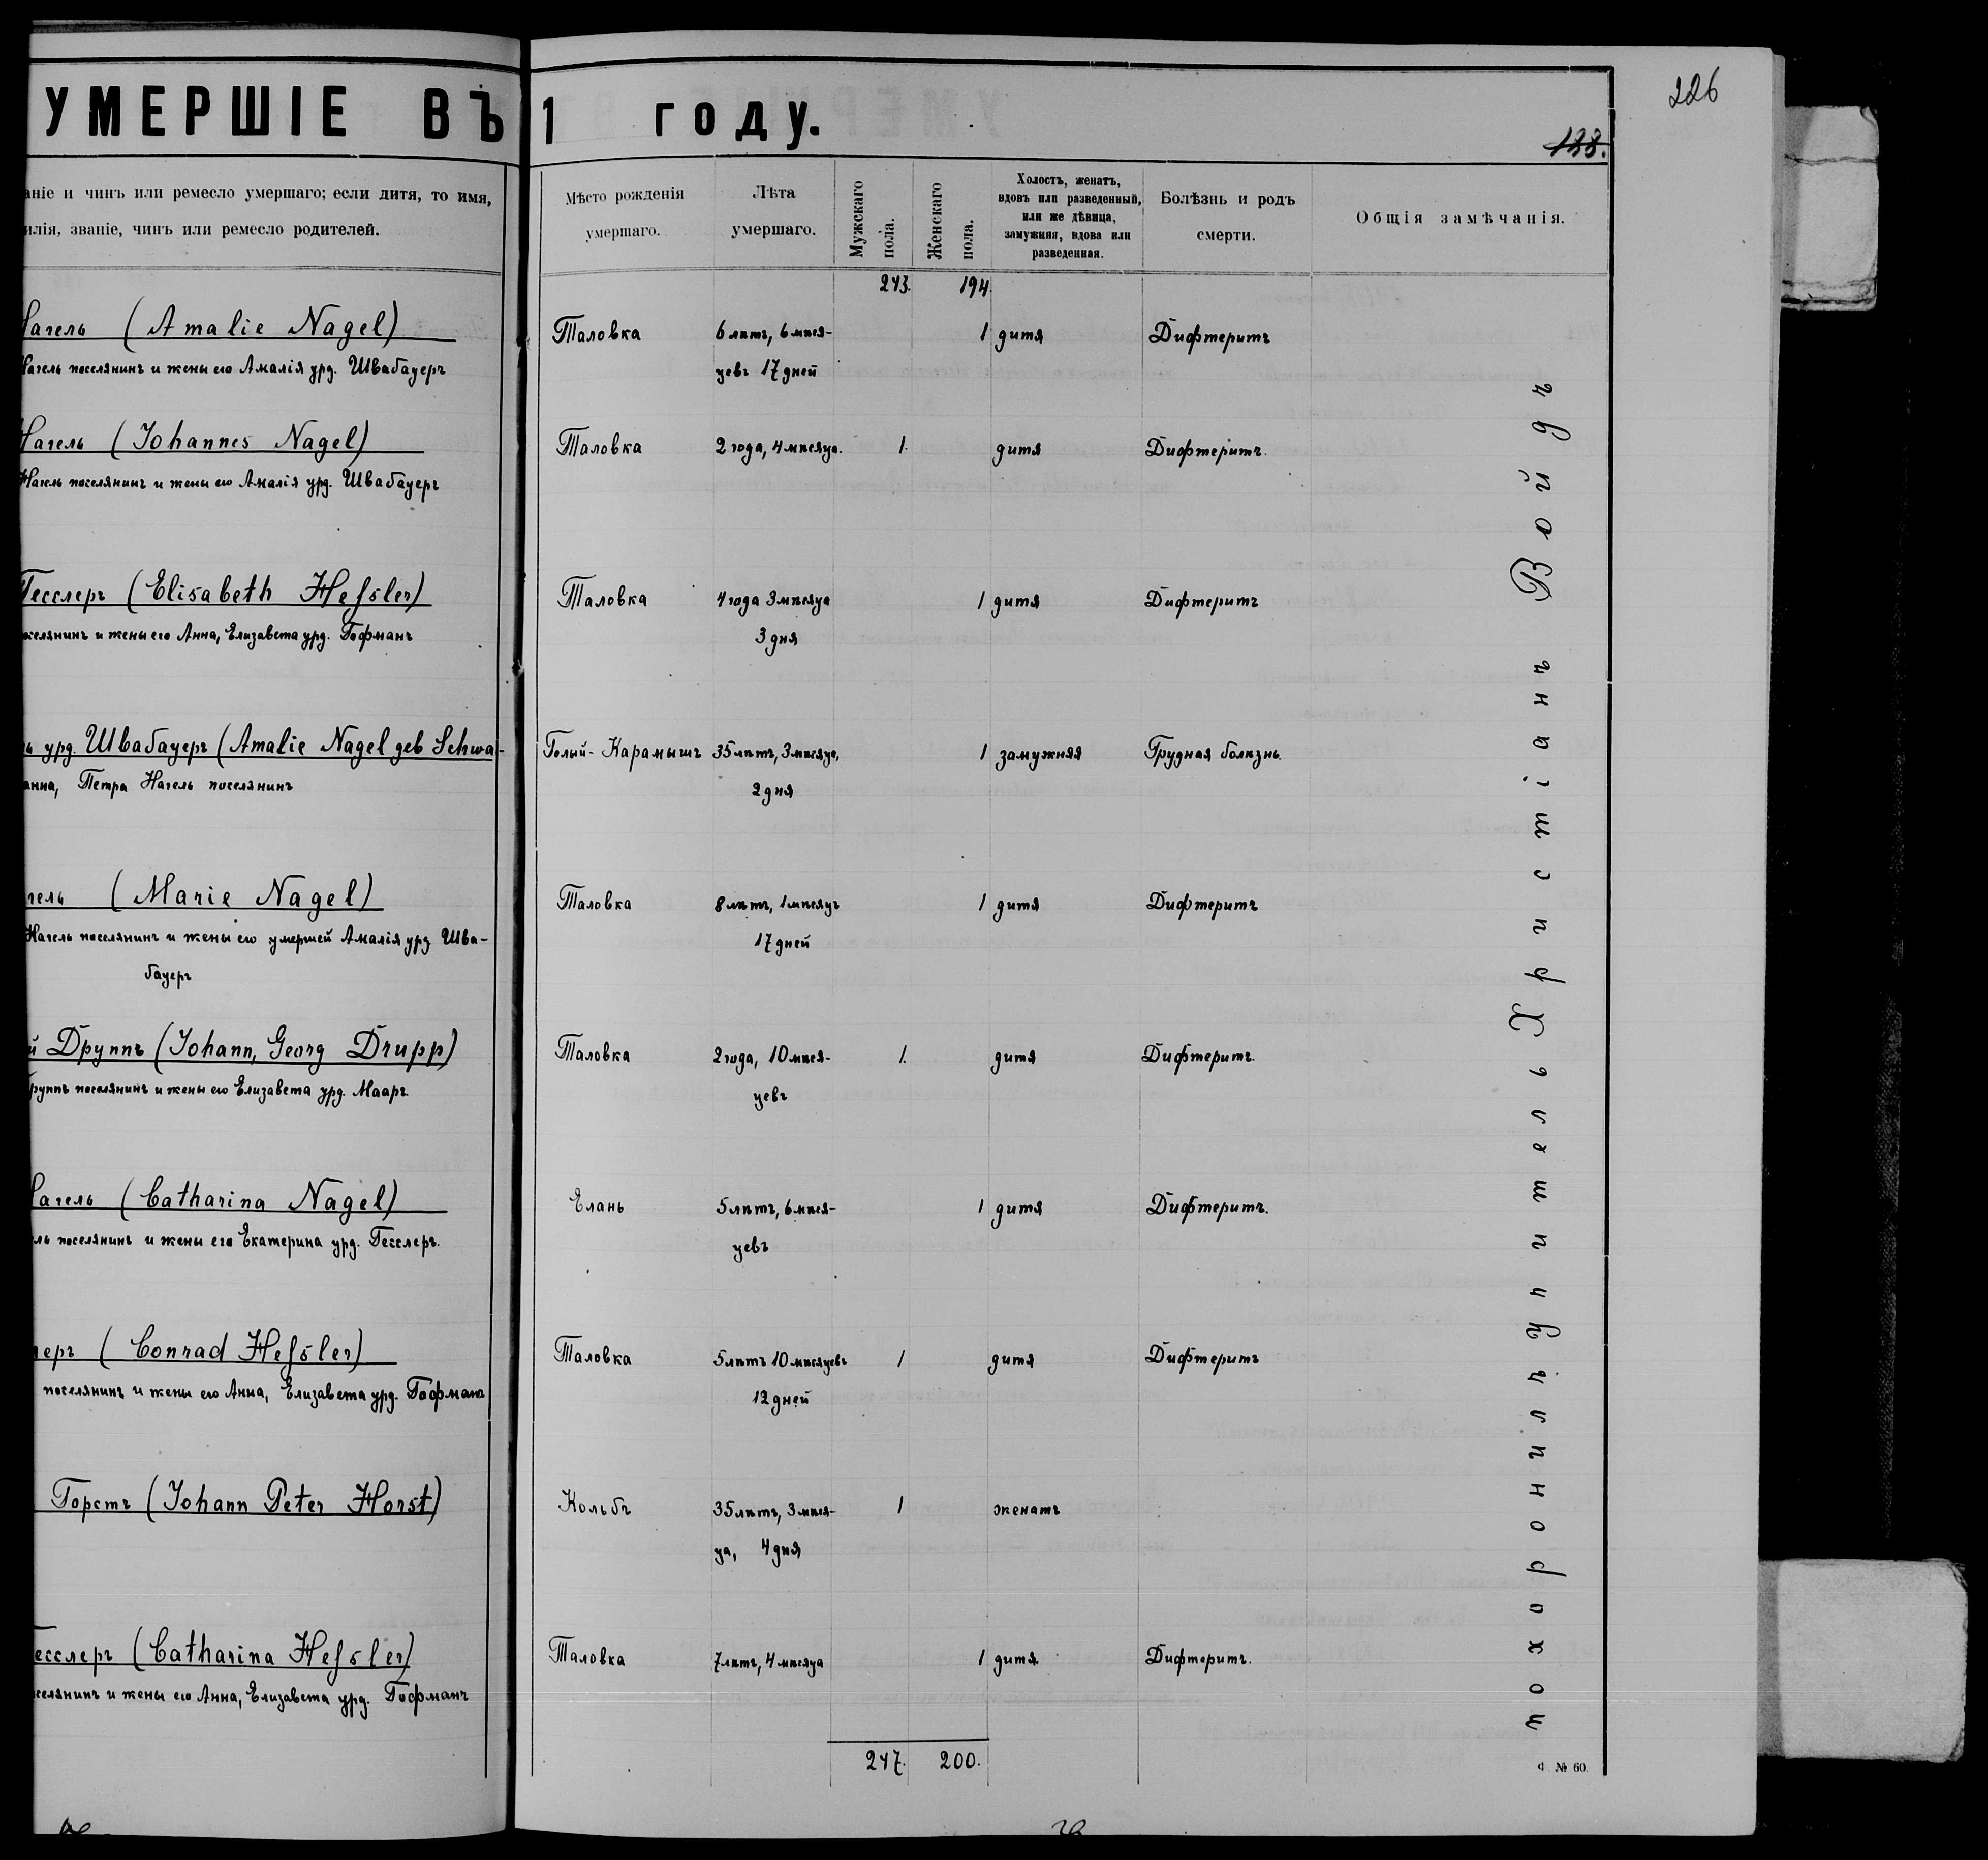 226
УМЕРШІЕ ВЪ 1 году.
188.
аніе и чинъ или ремесло умершаго; если дитя, то имя,
илія, званіе, чинъ или ремесло родителей.
Мѣсто рожденія
умершаго.
Лѣта
умершаго.
Мужскаго
пола.
Женскаго
пола.
Холостъ, женатъ,
вдовъ или разведенный,
или же дѣвица,
замужняя, вдова или
разведенная.
Болѣзнь и родъ
смерти.
Общія замѣчанія.
243. 194.
Нагель (Amalie Nagel) Таловка 6 лѣтъ, 6 мѣся- 1 дитя Дифтеритъ
Нагель поселянинъ и жены его Амалія урд. Швабауеръ цевъ 17 дней
Нагель (Johannes Nagel) Таловка 2 года, 4 мѣсяца. 1. дитя Дифтеритъ.
Нагель поселянинъ и жены его Амалія урд. Швабауеръ
Гесслеръ (Elisabeth Heſsler) Таловка 4 года 3 мѣсяца 1 дитя Дифтеритъ
оселянинъ и жены его Анна, Елизавета урд. Гофманъ 3 дня
ь урд. Швабауеръ (Amalie Nagel geb Schwa- Голый-Карамышъ 35 лѣтъ, 3 мѣсяца, 1 замужняя Грудная болѣзнь.
анна, Петра Нагель поселянинъ 2 дня
гель (Marie Nagel) Таловка 8 лѣтъ, 1 мѣсяцъ 1 дитя Дифтеритъ
Нагель поселянинъ и жены его умершей Амалія урд Шва- 17 дней
бауеръ
й Друппъ (Johann, Georg Drupp) Таловка 2 года, 10 мѣся- 1. дитя Дифтеритъ.
руппъ поселянинъ и жены его Елизавета урд. Мааръ. цевъ
Нагель (Catharina Nagel) Елань 5 лѣтъ, 6 мѣся- 1 дитя Дифтеритъ.
ль поселянинъ и жены его Екатерина урд. Гесслеръ. цевъ
леръ (Conrad Heſsler) Таловка 5 лѣтъ 10 мѣсяцевъ 1 дитя Дифтеритъ
поселянинъ и жены его Анна, Елизавета урд. Гофманъ 12 дней
Горстъ (Johann Peter Horst) Кольбъ 35 лѣтъ, 3 мѣся- 1 женатъ
ца, 4 дня
есслеръ (Catharina Heſsler) Таловка 7 лѣтъ, 4 мѣсяца 1 дитя. Дифтеритъ.
селянинъ и жены его Анна, Елизавета урд. Гофманъ
247. 200.
похоронилъ Учитель Христіанъ Войдъ
№ 60.